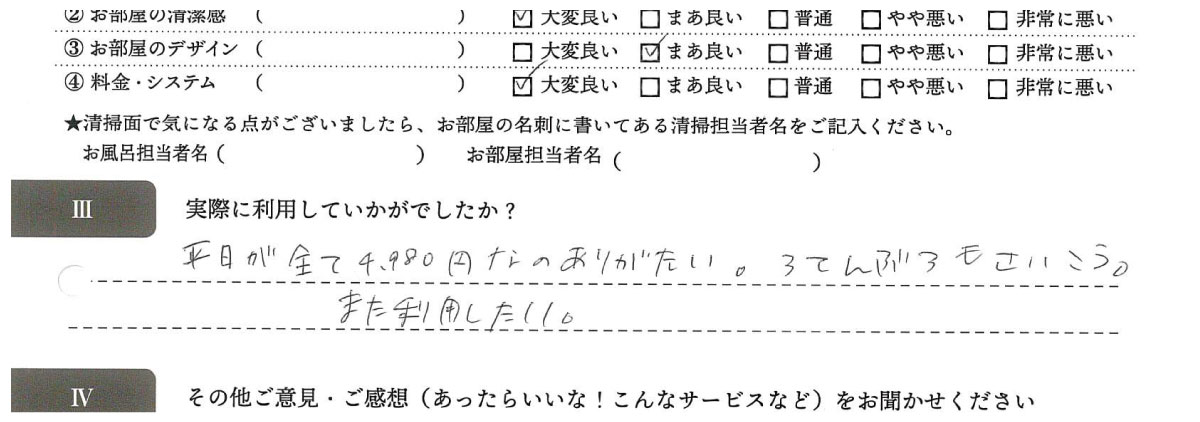 ② お部屋の清潔感 （ ） ☑ 大変良い □ まあ良い □ 普通 □ やや悪い □ 非常に悪い
③ お部屋のデザイン （ ） □ 大変良い ☑ まあ良い □ 普通 □ やや悪い □ 非常に悪い
④ 料金・システム （ ） ☑ 大変良い □ まあ良い □ 普通 □ やや悪い □ 非常に悪い
★清掃面で気になる点がございましたら、お部屋の名刺に書いてある清掃担当者名をご記入ください。
お風呂担当者名（ ） お部屋担当者名（ ）
Ⅲ 実際に利用していかがでしたか？
平日が全て4,980円なのありがたい。ろてんぶろもさいこう。
また利用したい。
Ⅳ その他ご意見・ご感想（あったらいいな！こんなサービスなど）をお聞かせください